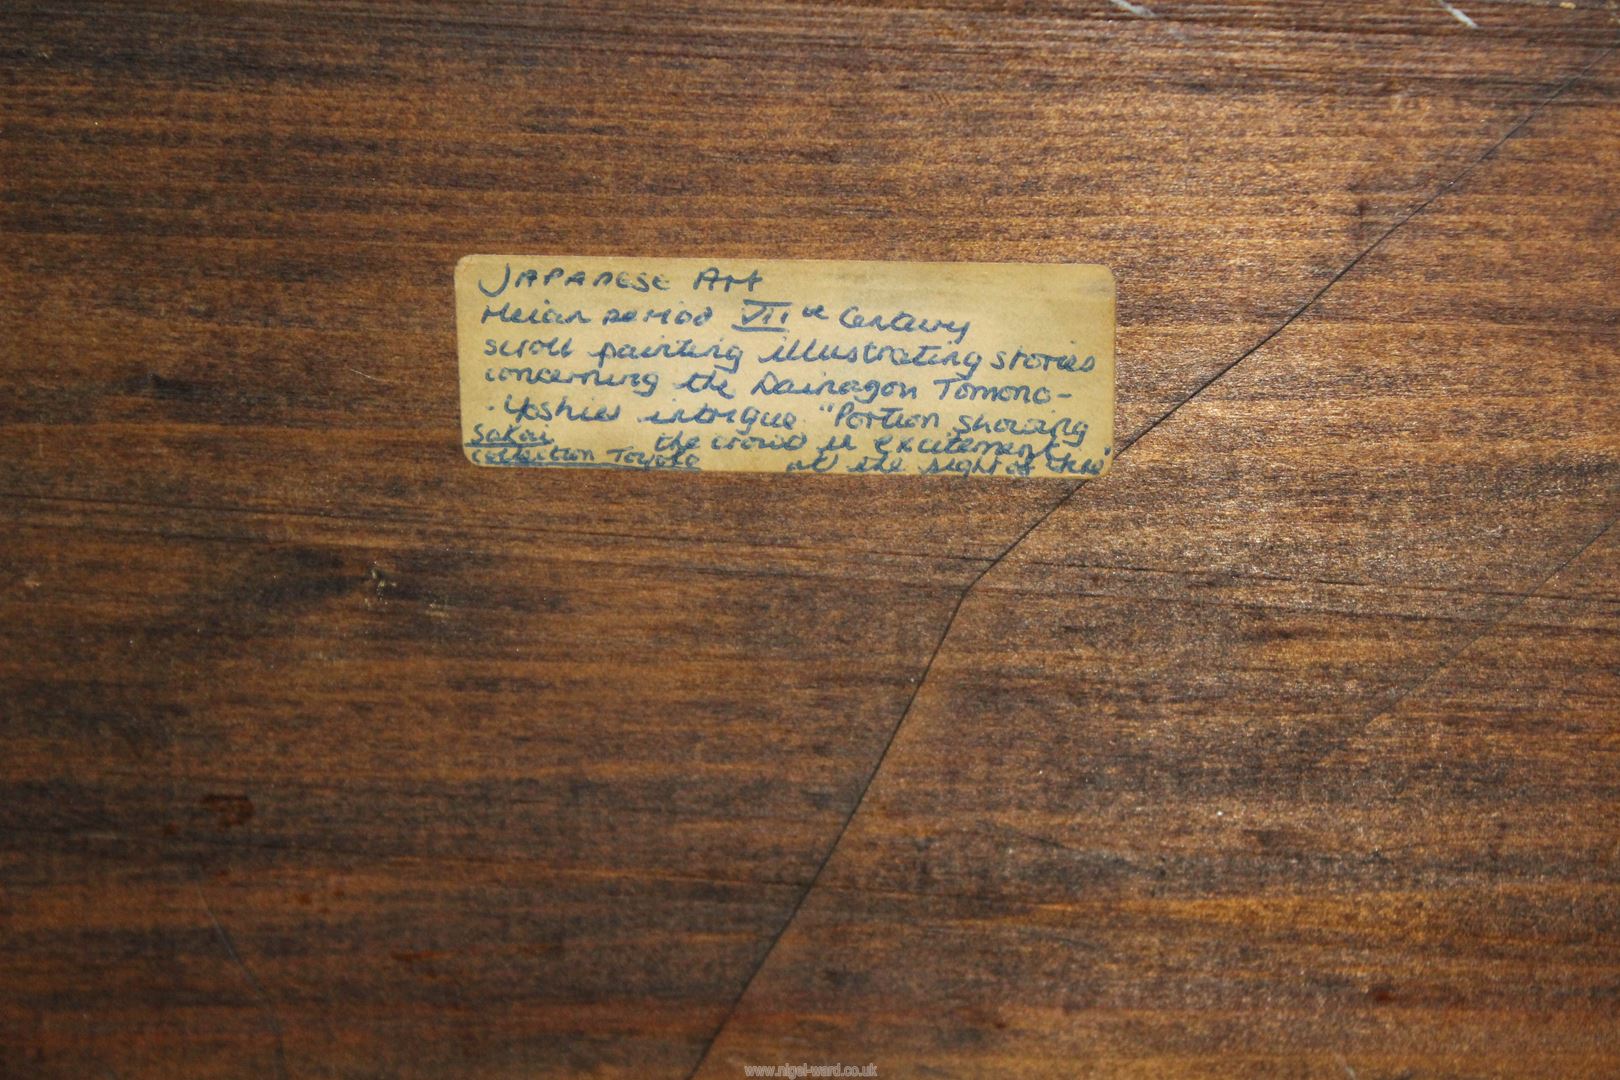 JAPANESE Art
Heian period VII th Century
scroll painting illustrating stories
concerning the Dainagon Tomono-
-Yoshies intrigue "Portion showing
Sakai the crowd in excitement
Collection Toyoto at the sight of fire"
www.nigel-ward.co.uk